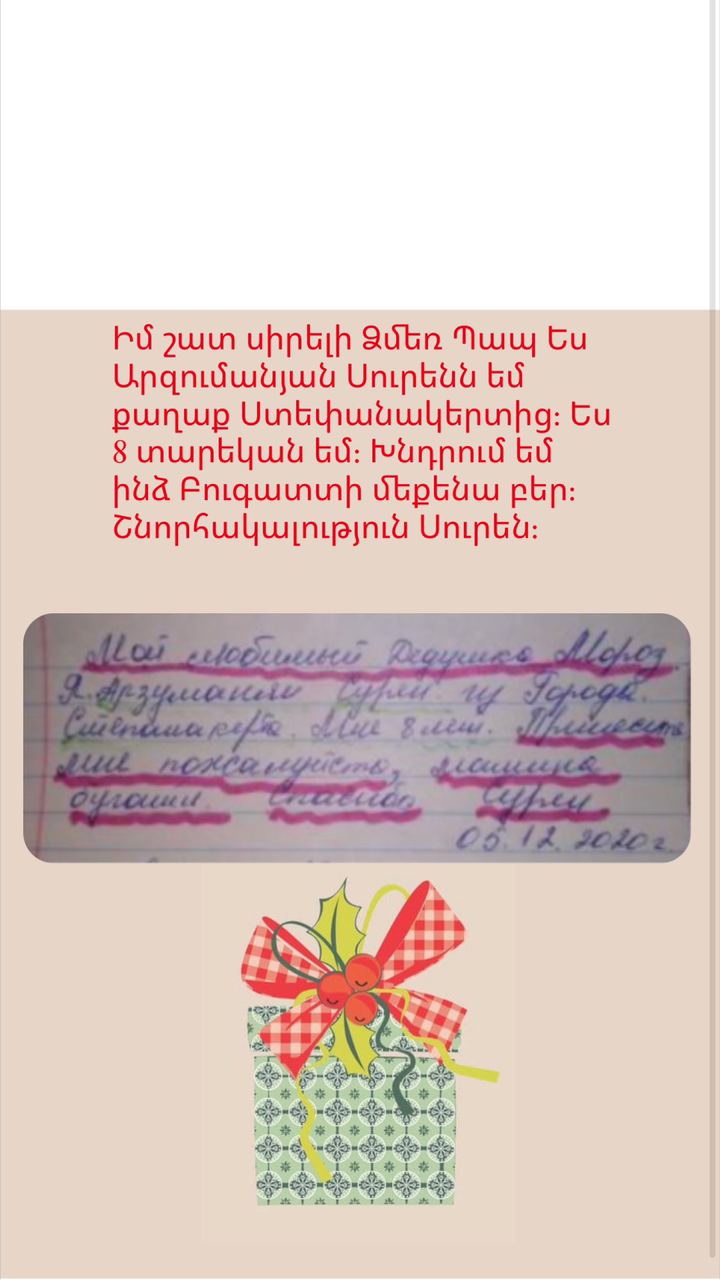 Իմ շատ սիրելի Ձմեռ Պապ Ես
Արզումանյան Սուրենն եմ
քաղաք Ստեփանակերտից։ Ես
8 տարեկան եմ։ Խնդրում եմ
ինձ Բուգատտի մեքենա բեր։
Շնորհակալություն Սուրեն։
Мой любимый Дедушка Мороз.
Я. Арзуманян Сурен. Города.
Степанакерта. Мне 8 лет. Принесите
мне пожалуйста, машина
бугатти. Спасибо Сурен
05.12.2020г.